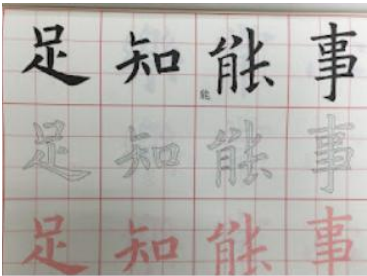 足知能事
能
足知能事
足知能事